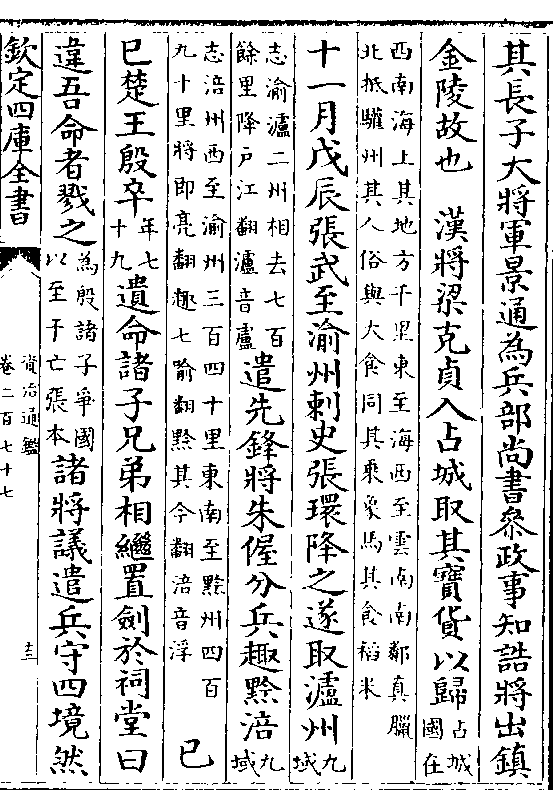 其長子大將軍景通為兵部尚書參政事知誥將出鎮
金陵故也　漢將梁克貞入占城取其寶貨以歸占城國在
西南海上其地方千里東至海西至雲南南鄰真臘
北抵驩州其人俗與大食同其乘象馬其食稻米
十一月戊辰張武至渝州刺史張環降之遂取瀘州九域
志渝瀘二州相去七百
餘里降户江翻瀘音盧
遣先鋒將朱偓分兵趣黔涪九域
志涪州西至渝州三百四十里東南至黔州四百
九十里將即亮翻趣七喻翻黔其今翻涪音浮
已
已楚王殷卒年七十九遺命諸子兄弟相繼置劍於祠堂曰
違吾命者戮之為殷諸子爭國以至于亡張本諸將議遣兵守四境然
欽定四庫全書
資治通鑑
卷二百七十七